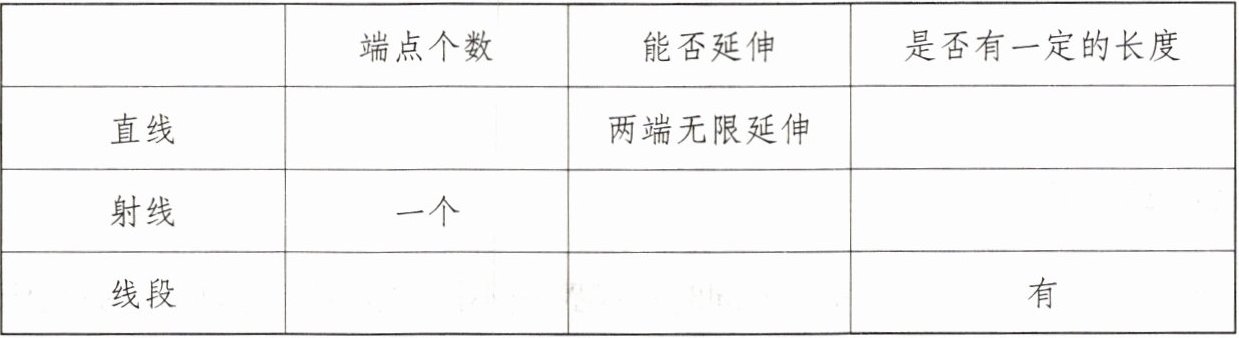 端点个数 能否延伸 是否有一定的长度
直线 两端无限延伸
射线 一个
线段 有